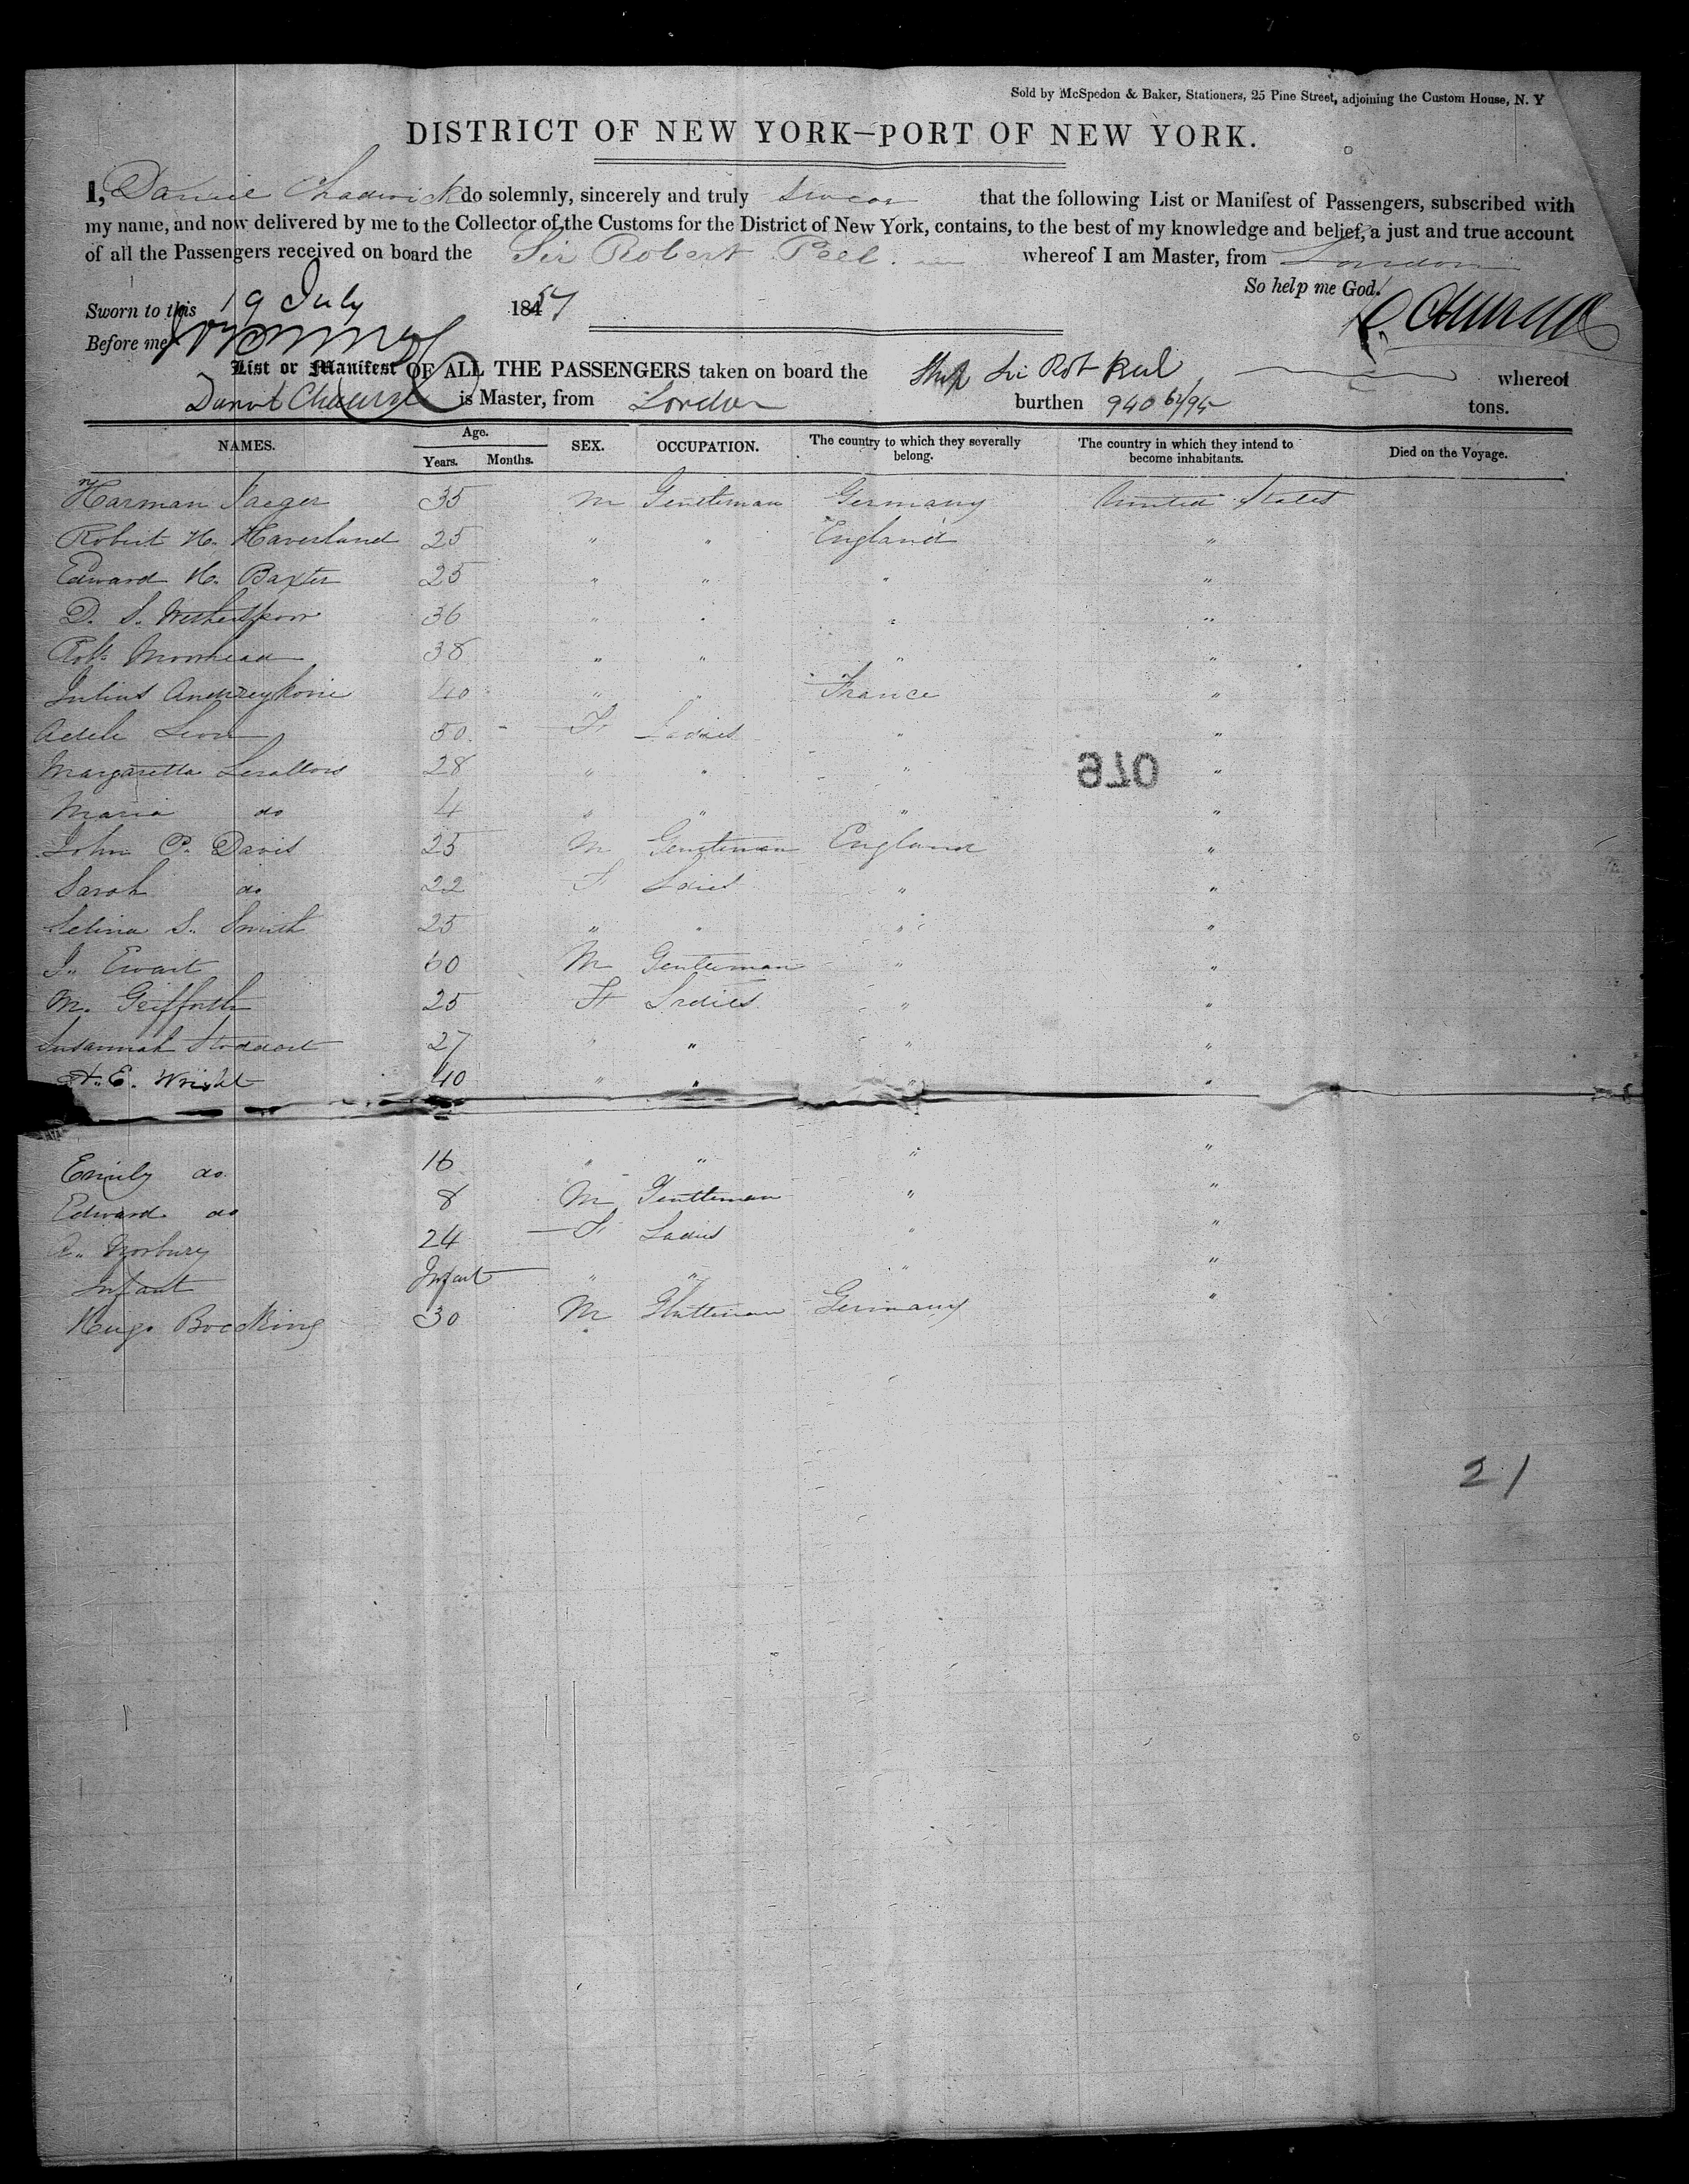 Sold by McSpedon & Baker, Stationers, 25 Pine Street, adjoining the Custom House, N. Y
DISTRICT OF NEW YORK–PORT OF NEW YORK.
I, Daniel Chadwick do solemnly, sincerely and truly swear that the following List or Manifest of Passengers, subscribed with
my name, and now delivered by me to the Collector of the Customs for the District of New York, contains, to the best of my knowledge and belief, a just and true account
of all the Passengers received on board the Sir Robert Peel whereof I am Master, from London
So help me God.
Sworn to this 19 July 1854
Before me
List or Manifest OF ALL THE PASSENGERS taken on board the Ship Sir Rot Peel whereof
is Master, from London burthen 940 64/95 tons.
NAMES. Age. Years. Months. SEX. OCCUPATION. The country to which they severally belong. The country in which they intend to become inhabitants. Died on the Voyage.
Harman Jaeger 35 M Gentleman Germany United States
Robert H. Haverland 25 " " England "
Edward H. Baxter 25 " " " "
D. S. Witherspoon 36 " " " "
Robt Moorhead 38 " " " "
Julius 40 " " France "
Adele Leon 50 F Ladies " "
Margaretta 28 " " " "
Maria do 4 " " " "
John P. Davis 25 M Gentleman England "
Sarah do 22 F Ladies " "
Selina S. Smith 25 " " " "
J. Ewart 60 M Gentleman " "
M. Griffoth 25 F Ladies " "
Susannah Stoddart 27 " " " "
A. E. Wright 40 " " " "
Emily do 16 " " " "
Edward do 8 M Gentleman " "
A. Norbury 24 F Ladies " "
Infant Infant " " " "
Hugo Bocking 30 M Gentleman Germany "
970
21